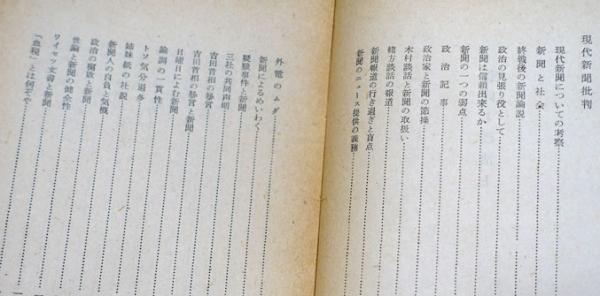 現代新聞批判
現代新聞についての考察
新聞と社会
終戦後の新聞論説
政治の見張り役として
新聞は信頼出来るか
新聞の一つの弱点
政治記事
政治家と新聞の節操
木村談話と新聞の取扱い
緒方談話の報道
新聞報道の行き過ぎと盲点
新聞のニュース提供の義務
外電のムダ
新聞によるめいわく
疑獄事件と新聞
三社の共同声明
吉田首相の暴言
吉田首相の暴言と新聞
日曜日によむ新聞
論調の一貫性
トソ気分過多
姉妹紙の社説
新聞人の自負と気概
政治の腐敗と新聞
世論と新聞の健全性
ワイセツ文書と新聞
「血税」とは何ぞや